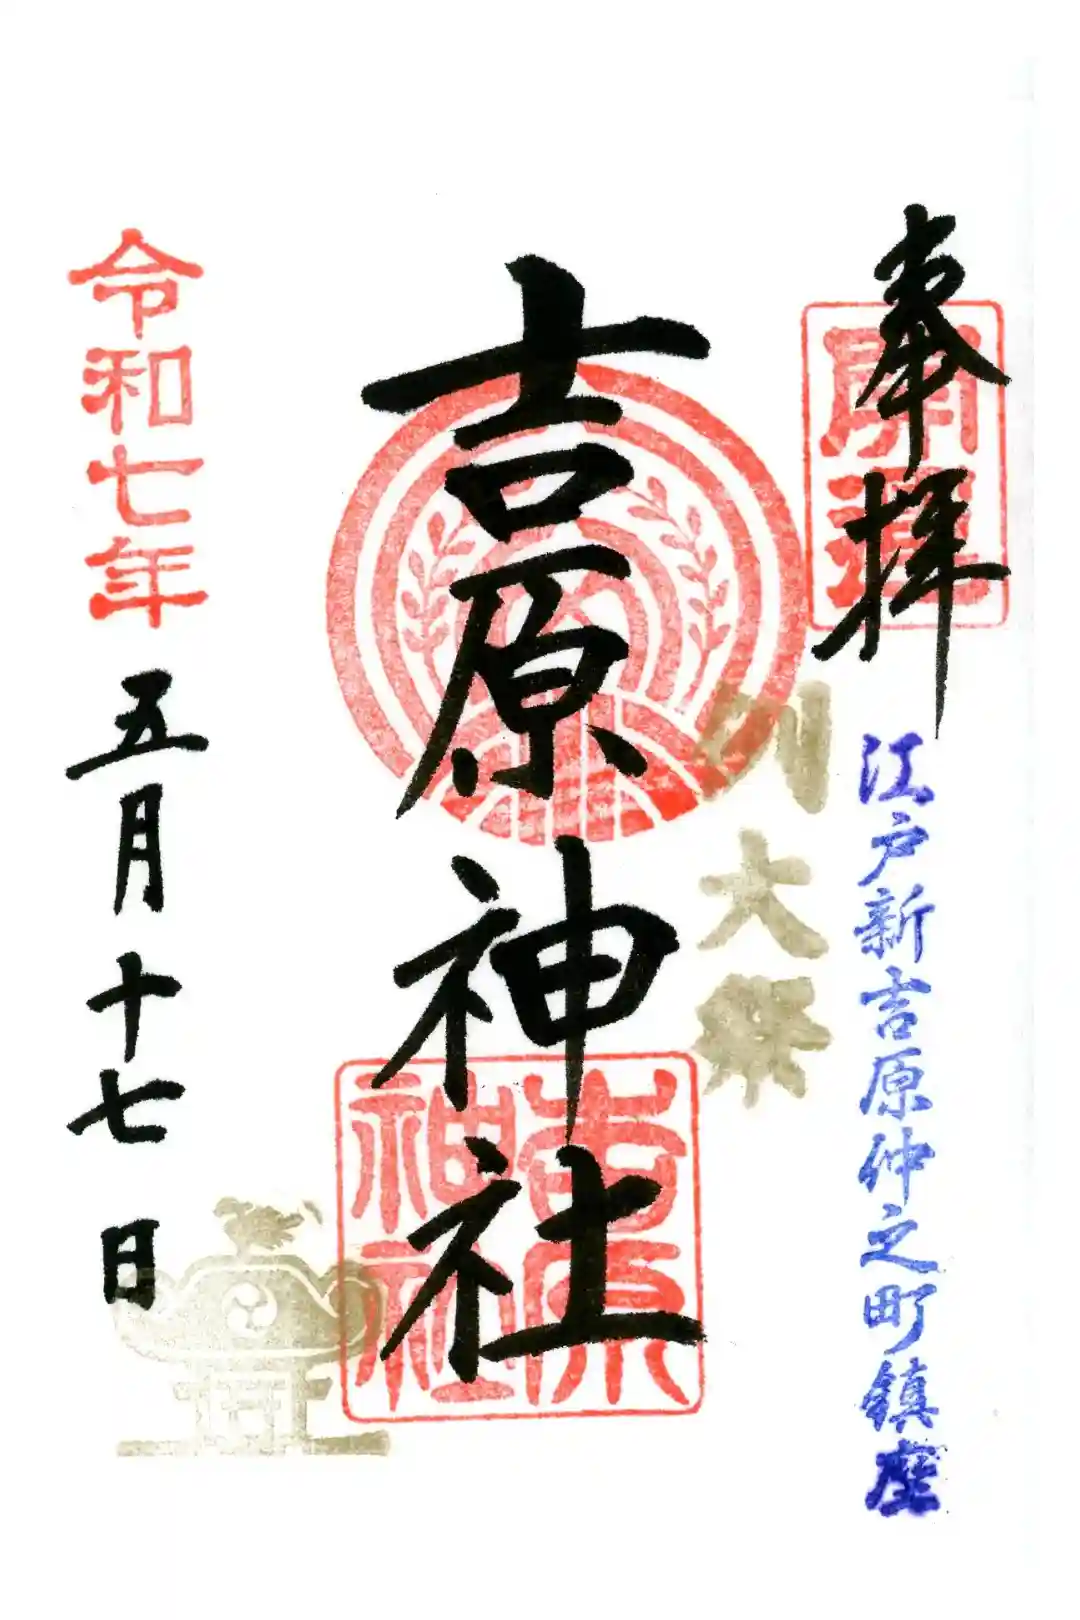 奉拝
開運
江戸新吉原仲之町鎮座
例大祭
吉原神社
吉原神社
令和七年
五月十七日